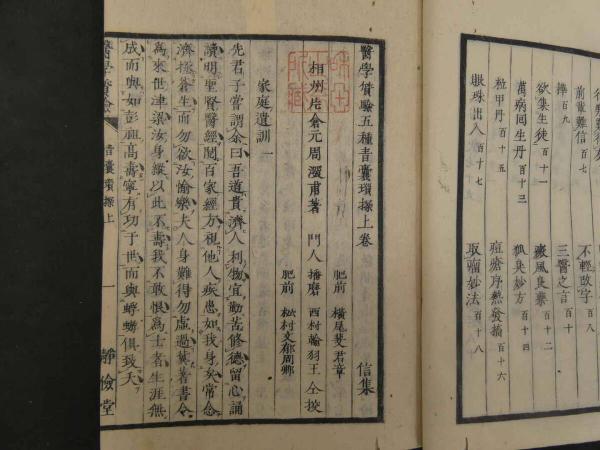 前電難信 百七
捧 百九
欲集生徒 百十一
萬病回生丹 百十三
粒甲丹 百十五
眼珠出入 百十七
不輕改字 百八
三醫之言 百十
狐臭妙方 百十四
痘瘡序熱發搐 百十六
取瘤妙法 百十八
醫學質驗五種青囊瑣探上卷
相州片倉元周深甫著
門人
播磨 西村
肥前 横尾斐君章
肥前 松村文郁周卿
仝挍
信集
家庭遺訓 一
先君子嘗謂余曰吾道貴濟人利物宜勤苦修德留心誦
讀明聖賢醫經閱百家經方視他人疾患如我身矣常念
濟拯蒼生而勿欲汝愉樂夫人身難得勿虛過葉著書令
為來世津梁汝身縱以此不壽我不敢恨為士者生涯無
成而與如彭祖高壽寧有功于世而與蜉蝣俱致夭
醫學質驗
青囊瑣探上
一
靜儉堂